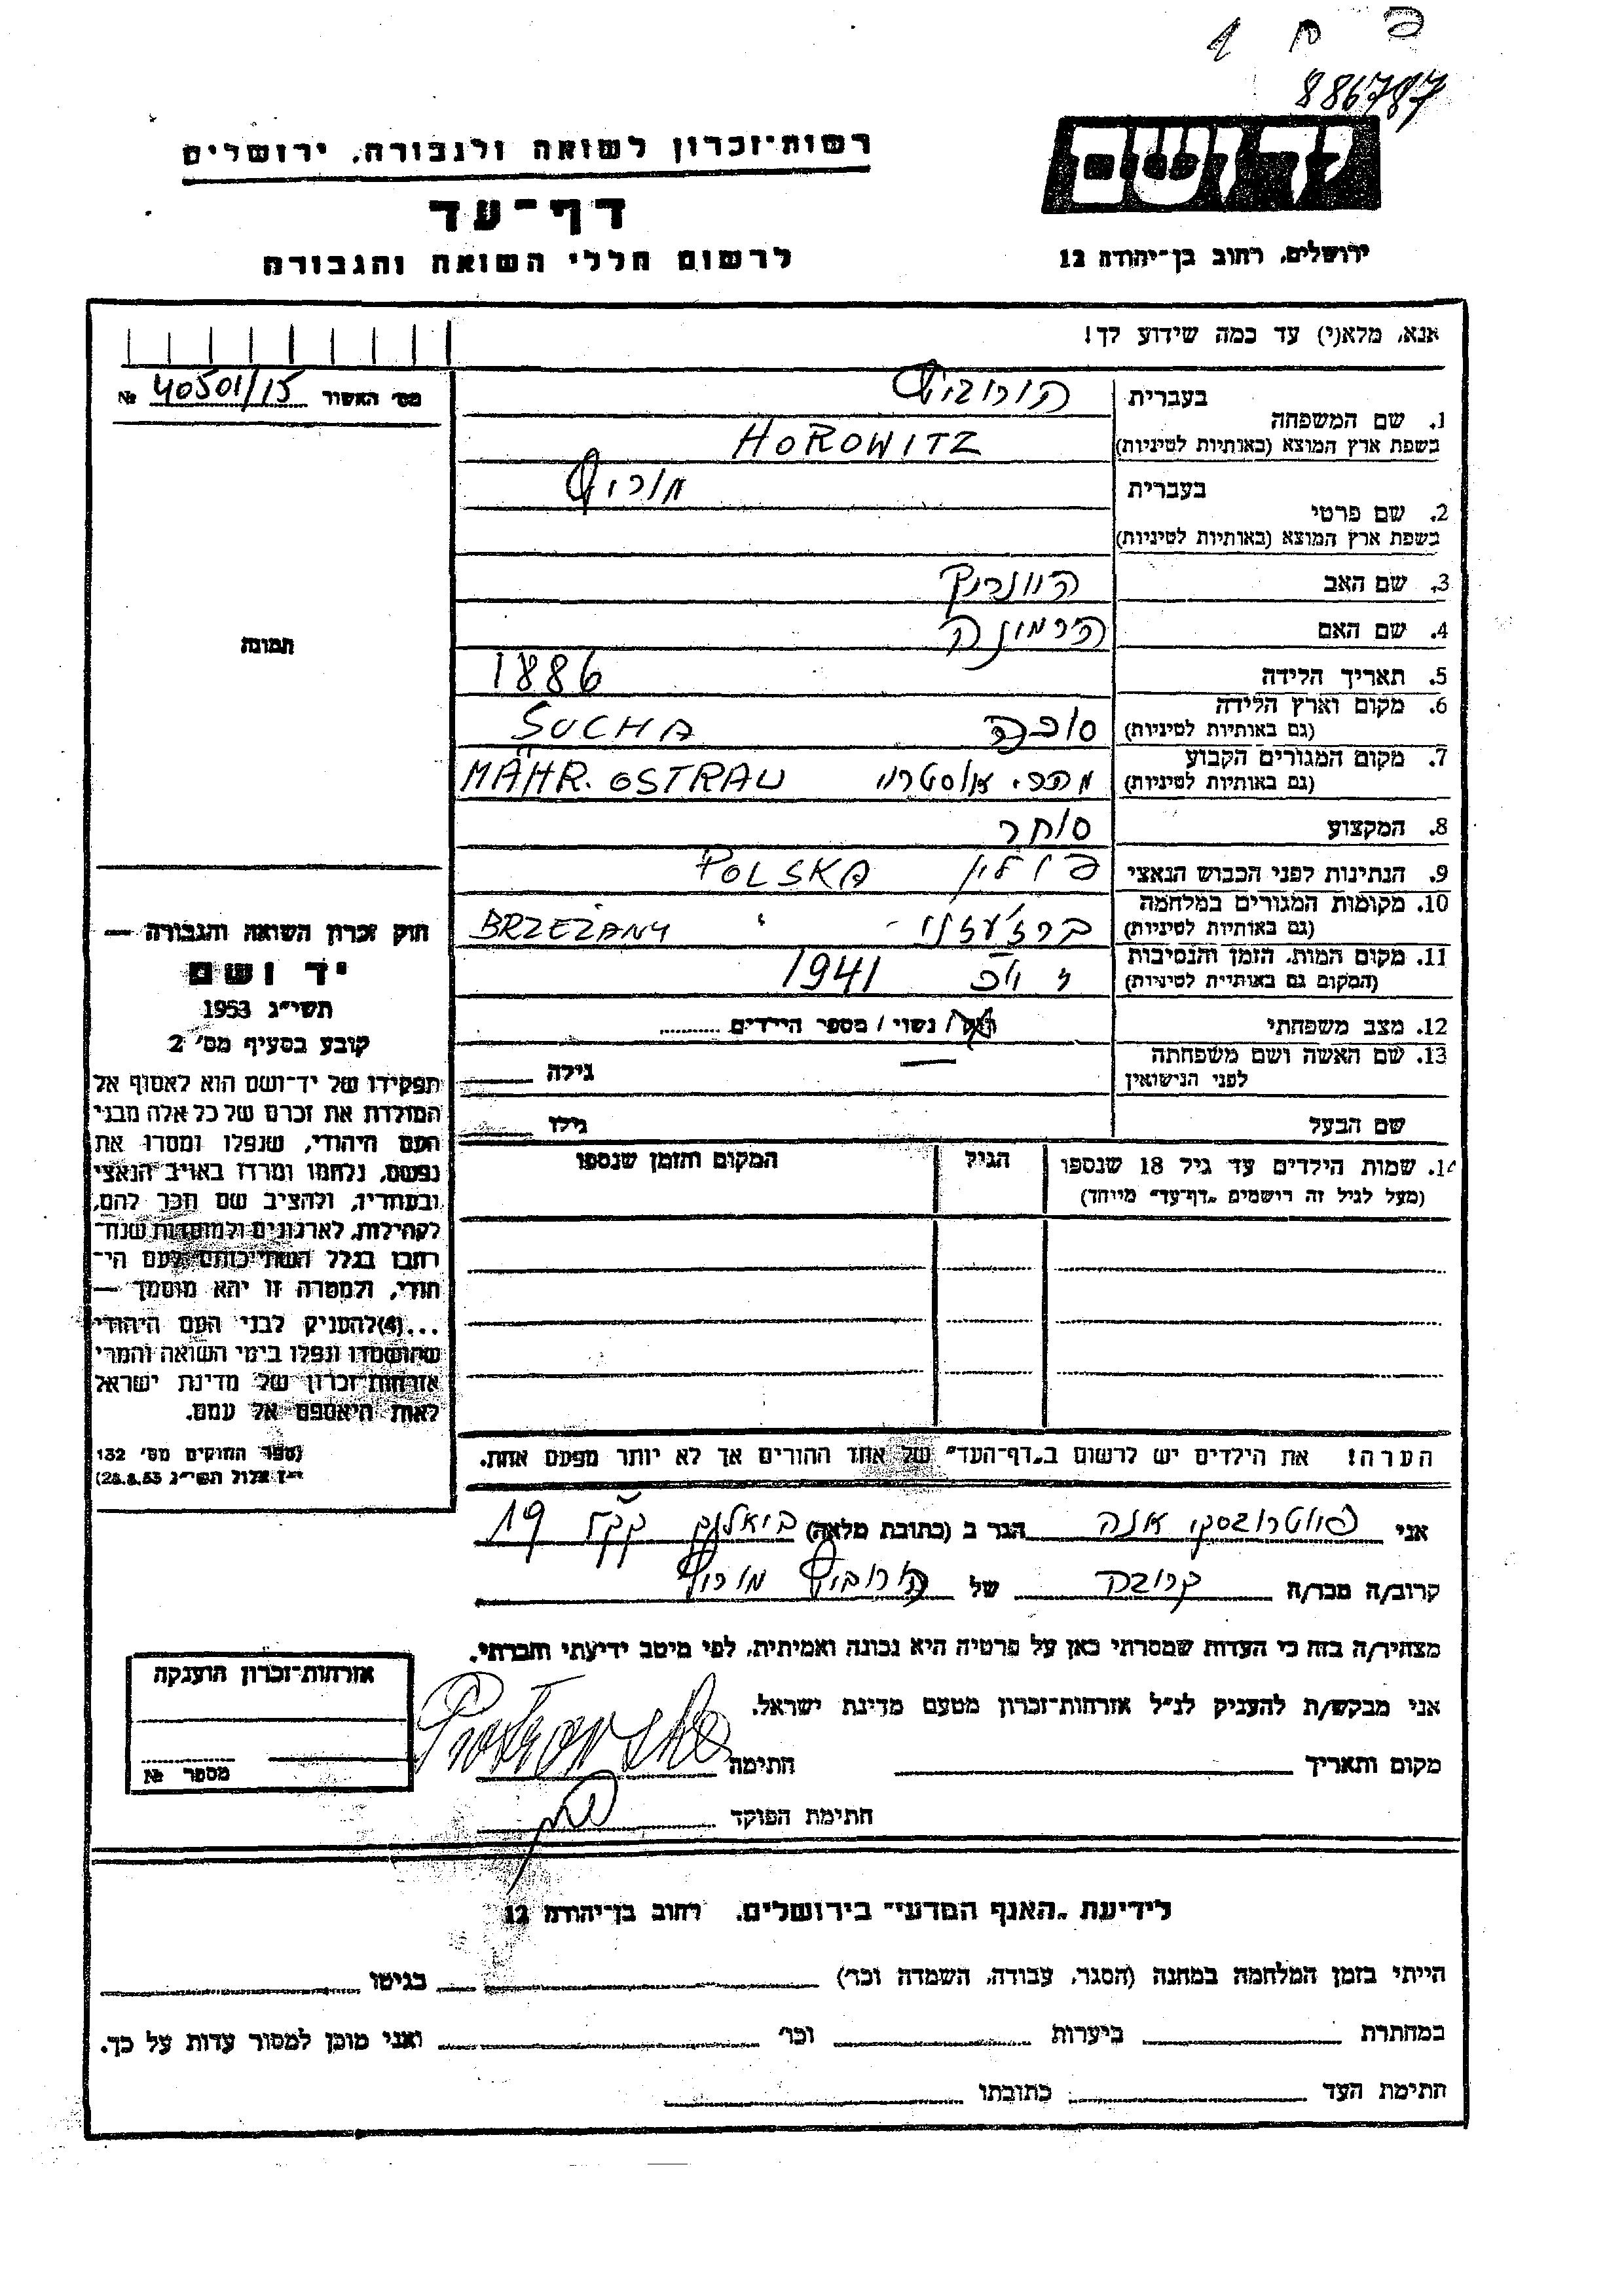 886787
יד ושם
רשות־זכרון לשואה ולגבורה, ירושלים
דף־עד
ירושלים, רחוב בן־יהודה 12
לרשום חללי השואה והגבורה
אנא, מלא(י) עד כמה שידוע לך!
מס׳ האשור 40501/15 №
1. שם המשפחה
בעברית הורוביץ
בשפת ארץ המוצא (באותיות לטיניות) HOROWITZ
2. שם פרטי
בעברית מוריץ
בשפת ארץ המוצא (באותיות לטיניות)
3. שם האב היינריך
4. שם האם הרמינה
5. תאריך הלידה 1886
6. מקום וארץ הלידה
(גם באותיות לטיניות) סוכה SUCHA
7. מקום המגורים הקבוע
(גם באותיות לטיניות) מהר. אוסטראו MÄHR. OSTRAU
8. המקצוע סוחר
9. הנתינות לפני הכבוש הנאצי פולין POLSKA
10. מקומות המגורים במלחמה
(גם באותיות לטיניות) ברז'עזני BRZEŻANY
11. מקום המות, הזמן והנסיבות
(המקום גם באותיית לטיניות) 1941
12. מצב משפחתי רווק / נשוי / מספר הילדים
13. שם האשה ושם משפחתה
לפני הנישואין — גילה
שם הבעל גילו
14. שמות הילדים עד גיל 18 שנספו
(מעל לגיל זה רושמים „דף־עד״ מיוחד)
הגיל
המקום והזמן שנספו
הערה! את הילדים יש לרשום ב„דף־העד״ של אחד ההורים אך לא יותר מפעם אחת.
תמונה
חוק זכרון השואה והגבורה —
יד ושם
תשי״ג 1953
קובע בסעיף מס׳ 2
תפקידו של יד־ושם הוא לאסוף אל
המולדת את זכרם של כל אלה מבני
העם היהודי, שנפלו ומסרו את
נפשם, נלחמו ומרדו באויב הנאצי
ובעוזריו, ולהציב שם וזכר להם,
לקהילות, לארגונים ולמוסדות שנח־
רבו בגלל השתייכותם לעם הי־
הודי, ולמטרה זו יהא מוסמך —
...(4)להעניק לבני העם היהודי
שהושמדו ונפלו בימי השואה והמרי
אזרחות־זכרון של מדינת ישראל
לאות היאספם אל עמם.
(ספר החוקים מס׳ 132
י״ז אלול תשי״ג 28.8.53)
אני פיוטרובסקי אנה הגר ב (כתובת מלאה) ביאליק 19
קרוב/ה מכר/ה קרובה של הורוביץ מוריץ
מצהיר/ה בזה כי העדות שמסרתי כאן על פרטיה היא נכונה ואמיתית, לפי מיטב ידיעתי והכרתי.
אני מבקש/ת להעניק לנ״ל אזרחות־זכרון מטעם מדינת ישראל.
מקום ותאריך חתימה
חתימת הפוקד
אזרחות־זכרון הוענקה
מספר №
לידיעת „האגף המדעי״ בירושלים, רחוב בן־יהודה 12
הייתי בזמן המלחמה במחנה (הסגר, עבודה, השמדה וכו׳) בגיטו
במחתרת ביערות וכו׳ ואני מוכן למסור עדות על כך.
חתימת העד כתובתו